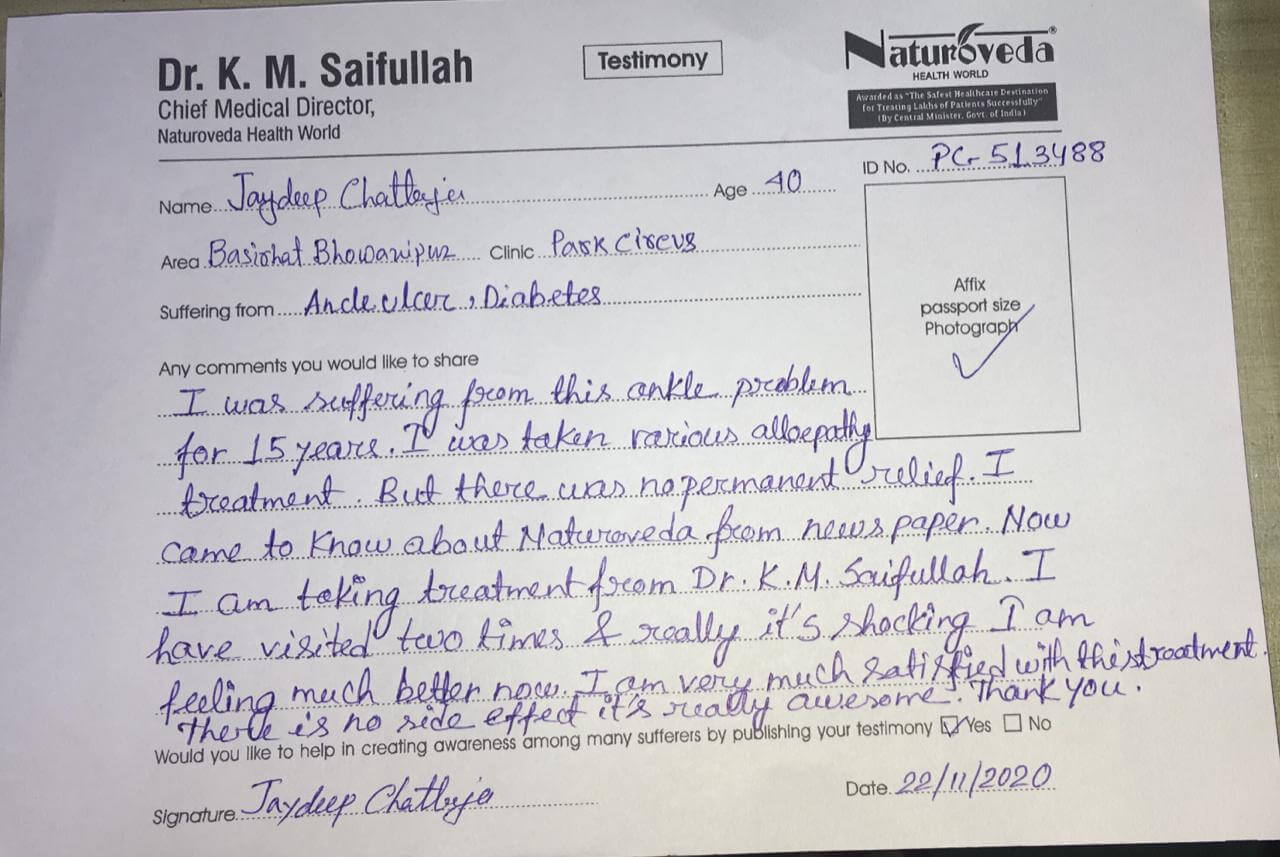 Dr. K. M. Saifullah
Chief Medical Director,
Naturoveda Health World
Testimony
Naturoveda®
HEALTH WORLD
Awarded as "The Safest Healthcare Destination
for Treating Lakhs of Patients Successfully"
(By Central Minister, Govt. of India)
ID No. PC-513488
Name Jaydeep Chatterjee Age 40
Area Basirhat Bhowanipur Clinic Park Circus
Suffering from Ancle ulcer, Diabetes
Affix
passport size
Photograph
Any comments you would like to share
I was suffering from this ankle problem
for 15 years. I was taken various alloepathy
treatment. But there was no permanent relief. I
came to know about Naturoveda from news paper. Now
I am taking treatment from Dr. K.M. Saifullah. I
have visited two times & really it's shocking I am
feeling much better now. I am very much satisfied with this treatment.
There is no side effect it's really awesome. Thank you.
Would you like to help in creating awareness among many sufferers by publishing your testimony Yes No
Signature Jaydeep Chatterjee
Date 22/11/2020